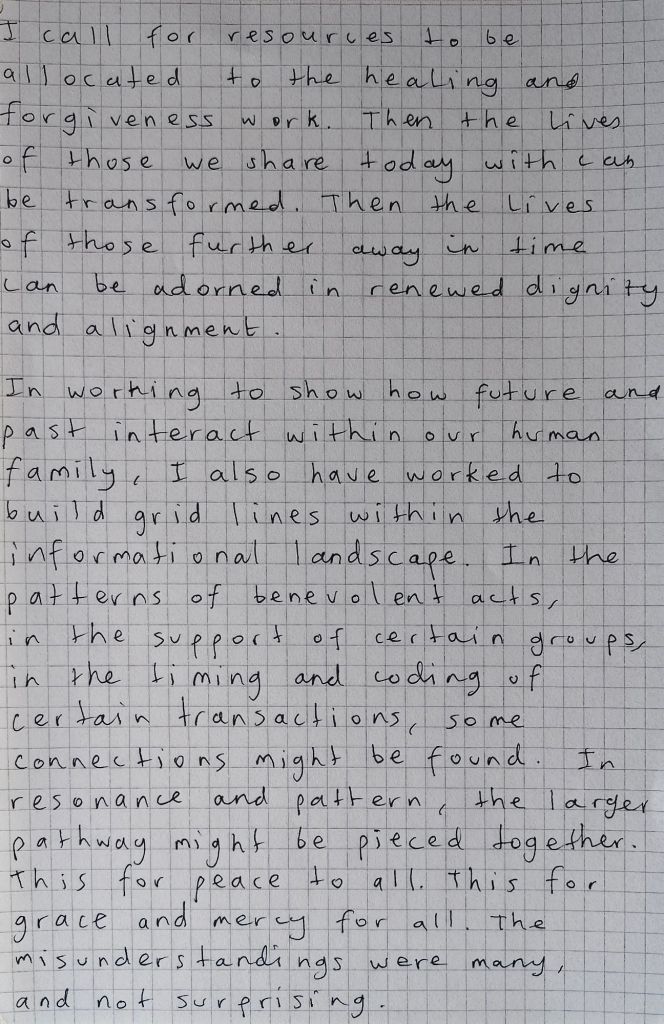 I call for resources to be
allocated to the healing and
forgiveness work. Then the lives
of those we share today with can
be transformed. Then the lives
of those further away in time
can be adorned in renewed dignity
and alignment.
In working to show how future and
past interact within our human
family, I also have worked to
build grid lines within the
informational landscape. In the
patterns of benevolent acts,
in the support of certain groups,
in the timing and coding of
certain transactions, some
connections might be found. In
resonance and pattern, the larger
pathway might be pieced together.
This for peace to all. This for
grace and mercy for all. The
misunderstandings were many,
and not surprising.